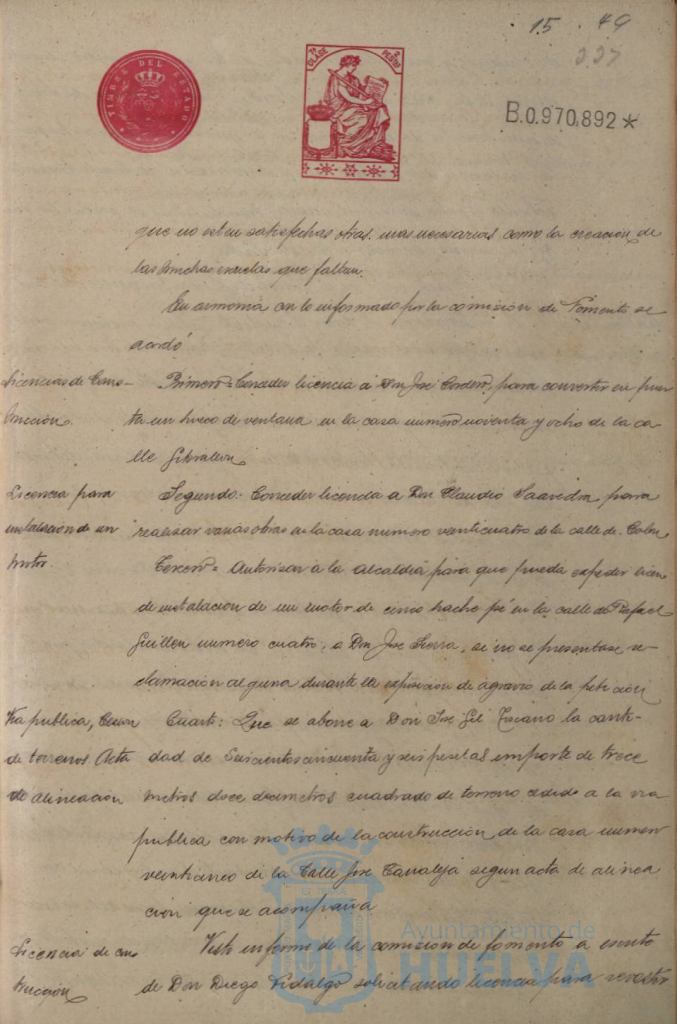 15. 49
227
TIMBRE DEL ESTADO
7ª CLASE
2 PESETAS
B.0.970.892*
que no esten satisfechas otras mas necesarias como la creacion de
las muchas escuelas que faltan.
En armonia con lo informado por la comisión de Fomento se
acordó
Licencias de Cons-
trucción.
Primero = Conceder licencia á Don José Cordero, para convertir en puer
ta un hueco de ventana en la casa numero noventa y ocho de la ca
lle Gibraleon
Licencia para
instalación de un
motor.
Segundo: Conceder licencia a Don Claudio Saavedra para
realisar varias obras en la casa numero veinticuatro de la calle de
Tercero = Autorisar á la alcaldia para que pueda expedir licen
de instalacion de un motor de cinco hache pé en la calle de Rafael
Guillen numero cuatro, a Don Jose Sierra, si no se presentase re
clamación alguna durante la exposicion de agravio de la peticion
Via publica,
de terrenos. Acta
de alineación
Cuarto: Que se abone a Don José Gil Toscano la canti-
dad de Seiscientos cincuenta y seis pesetas importe de trece
metros doce decimetros cuadrado de terreno cedido a la via
publica con motivo de la construcción de la casa numero
veinticinco de la Calle José Canaleja segun acta de alinea
cion que se acompaña
Licencia de cons
trucción
Visto informe de la comision de fomento a escrito
de Don Diego Fidalgo solicitando licencia para revestir
Ayuntamiento de
HUELVA